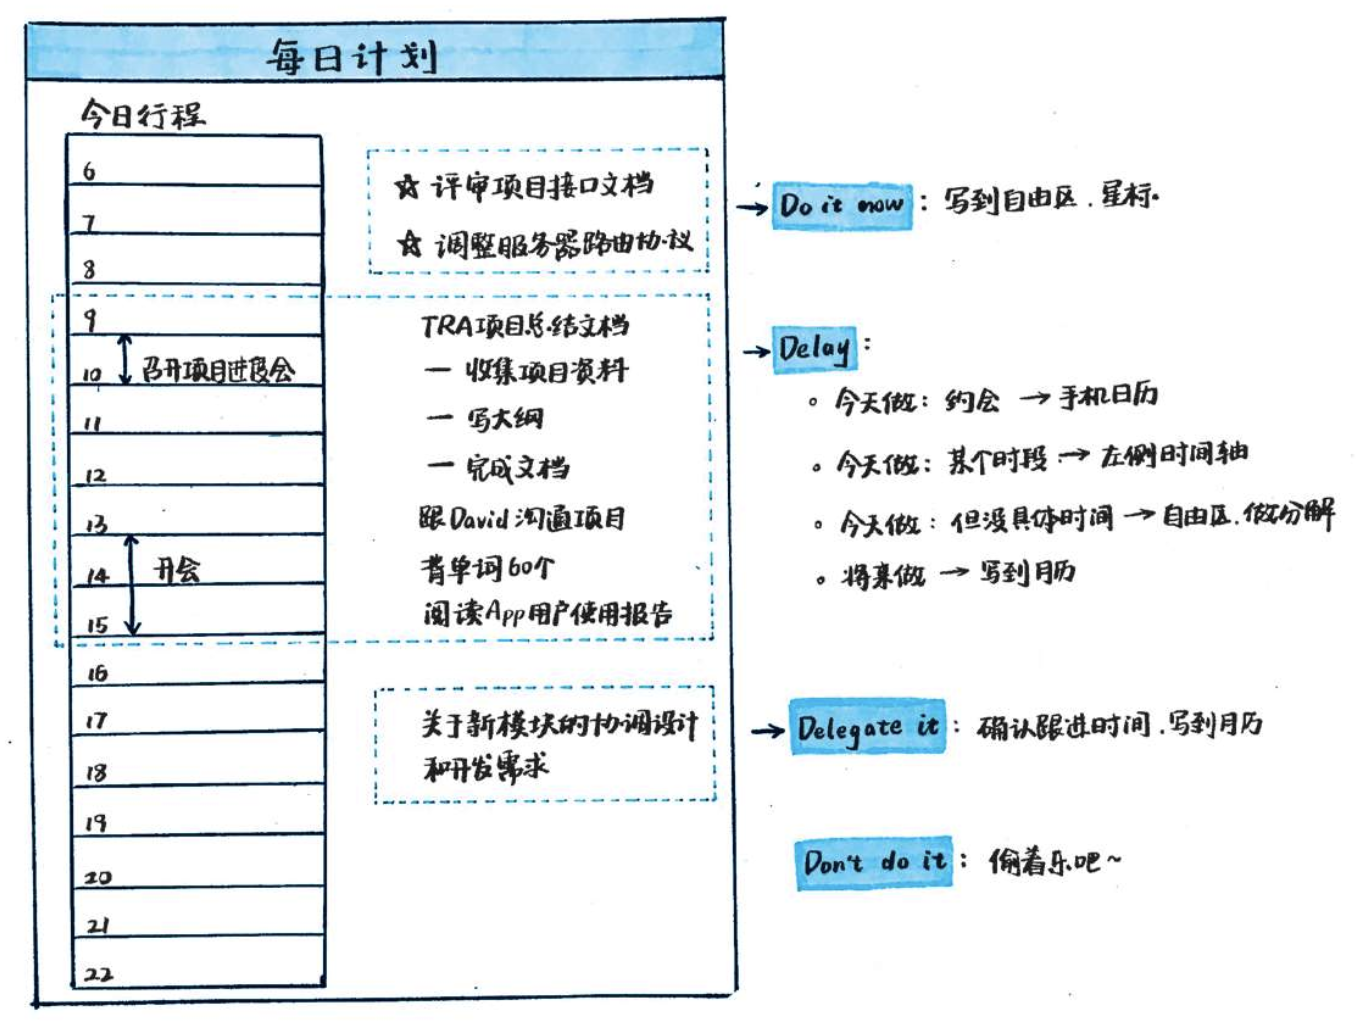 每日计划
今日行程
6
7
8
9
10
召开项目进度会
11
12
13
14
开会
15
16
17
18
19
20
21
22
☆ 评审项目接口文档
☆ 调整服务器路由协议
TRA项目总结文档
— 收集项目资料
— 写大纲
— 完成文档
跟David沟通项目
背单词60个
阅读App用户使用报告
关于新模块的协调设计
和开发需求
→ Do it now：写到自由区，星标。
→ Delay：
。今天做：约会 → 手机日历
。今天做：某个时段 → 左侧时间轴
。今天做：但没具体时间 → 自由区，做分解
。将来做 → 写到月历
→ Delegate it：确认跟进时间，写到月历
Don't do it：偷着乐吧~